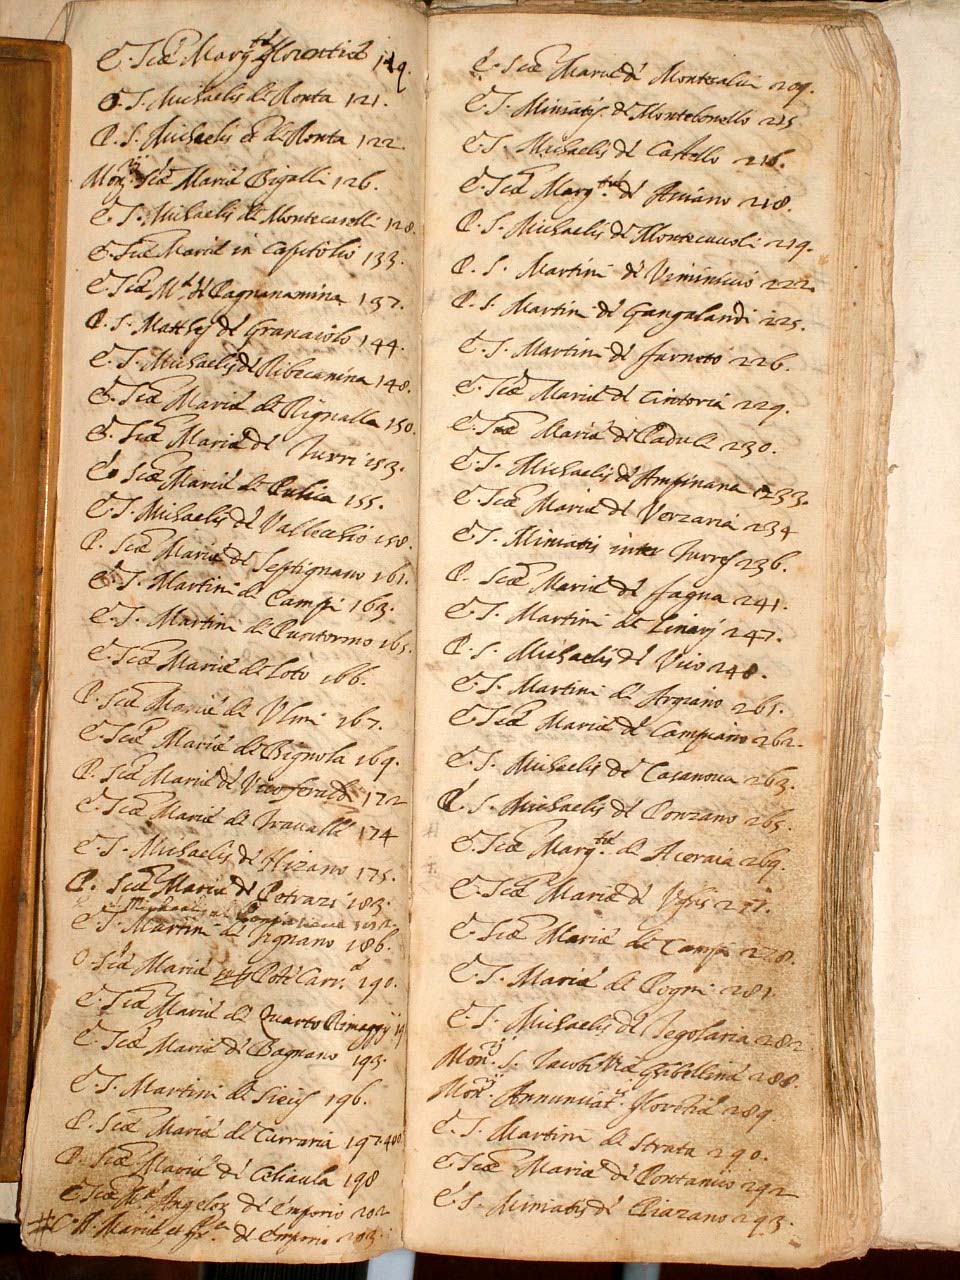 E. Scẽ Marg.te Florentiẽ 119.
E. S. Michaelis de Ronta 121.
P. S. Michaelis de Ronta 122.
Mon.rij Scẽ Mariẽ Bigalli 126.
E. S. Michaelis de Montecarelli 128.
E. Scẽ Mariẽ in Capitolio 133.
E. Scẽ M.ẽ de Pagnanamina 137.
P. S. Matthej de Granaiolo 144.
E. S. Michaelis de Ribecanina 148.
E. Scẽ Mariẽ de Rignalla 150.
E. Scẽ Mariẽ de Turri 153.
E. Scẽ Mariẽ de 155.
E. S. Michaelis de Vallecchio 158.
P. Scẽ Mariẽ de Septignano 161.
E. S. Martini de Campi 163.
E. S. Martini de Puntormo 165.
E. Scẽ Mariẽ de Loto 166.
P. Scẽ Mariẽ de Vlmi 167.
E. Scẽ Mariẽ de Bignola 169.
P. Scẽ Mariẽ de 172
E. Scẽ Mariẽ de Travalle 174
E. S. Michaelis de 175.
P. Scẽ Mariẽ de Petrazi 183.
E. S. Martini de Signano 186.
O. Scẽ Mariẽ 190.
E. Scẽ Mariẽ de Quarto
E. Scẽ Mariẽ de Bagnano 193.
E. S. Martini de Sicis 196.
P. Scẽ Mariẽ de Carraria 197.
P. Scẽ Mariẽ de 198
E. Scẽ Angeloz de Emporio 202
de Emporio 203.
E. Scẽ Mariẽ de Montecalvi 209.
E. S. Miniatis de Montebonello 215
E. S. Michaelis de Castello 216.
E. Scẽ Marg.te de Aviano 218.
P. S. Michaelis de Montecuccoli 219.
P. S. Martini de Viminiccio 222.
P. S. Martini de Gangalandi 225.
E. S. Martini de Farneto 226.
E. Scẽ Mariẽ de Cintoria 229.
E. Scẽ Mariẽ de Paduli 230.
E. S. Michaelis de Ampinana 233.
E. Scẽ Mariẽ de Verzaria 234
E. S. Miniatis inter Turres 236.
P. Scẽ Mariẽ de Fagna 241.
E. S. Martini de Linarj 247.
P. S. Michaelis de Vico 248.
E. S. Martini de Argiano 261.
E. Scẽ Mariẽ de Campiano 262.
E. S. Michaelis de Casanova 263.
P. S. Michaelis de Ponzano 265.
E. Scẽ Marg.te de Aceraia 269.
E. Scẽ Mariẽ de 271.
E. Scẽ Mariẽ de Campi 278.
E. S. Mariẽ de Pogni 281.
E. S. Michaelis de Tegolaria 282
Mon.rij S. Jacobi Via Gibellina 288.
Mon.rij Annuntiat. Florẽtiẽ 289.
E. S. Martini de Strata 290.
E. Scẽ Mariẽ de Pontanico 292
E. S. Miniatis de Piazano 293.